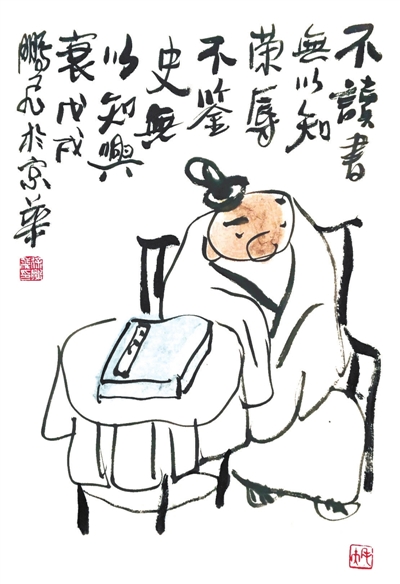 不讀書
無以知
荣辱
不鉴
史無
以知興
衰戊戌
鵬於京華